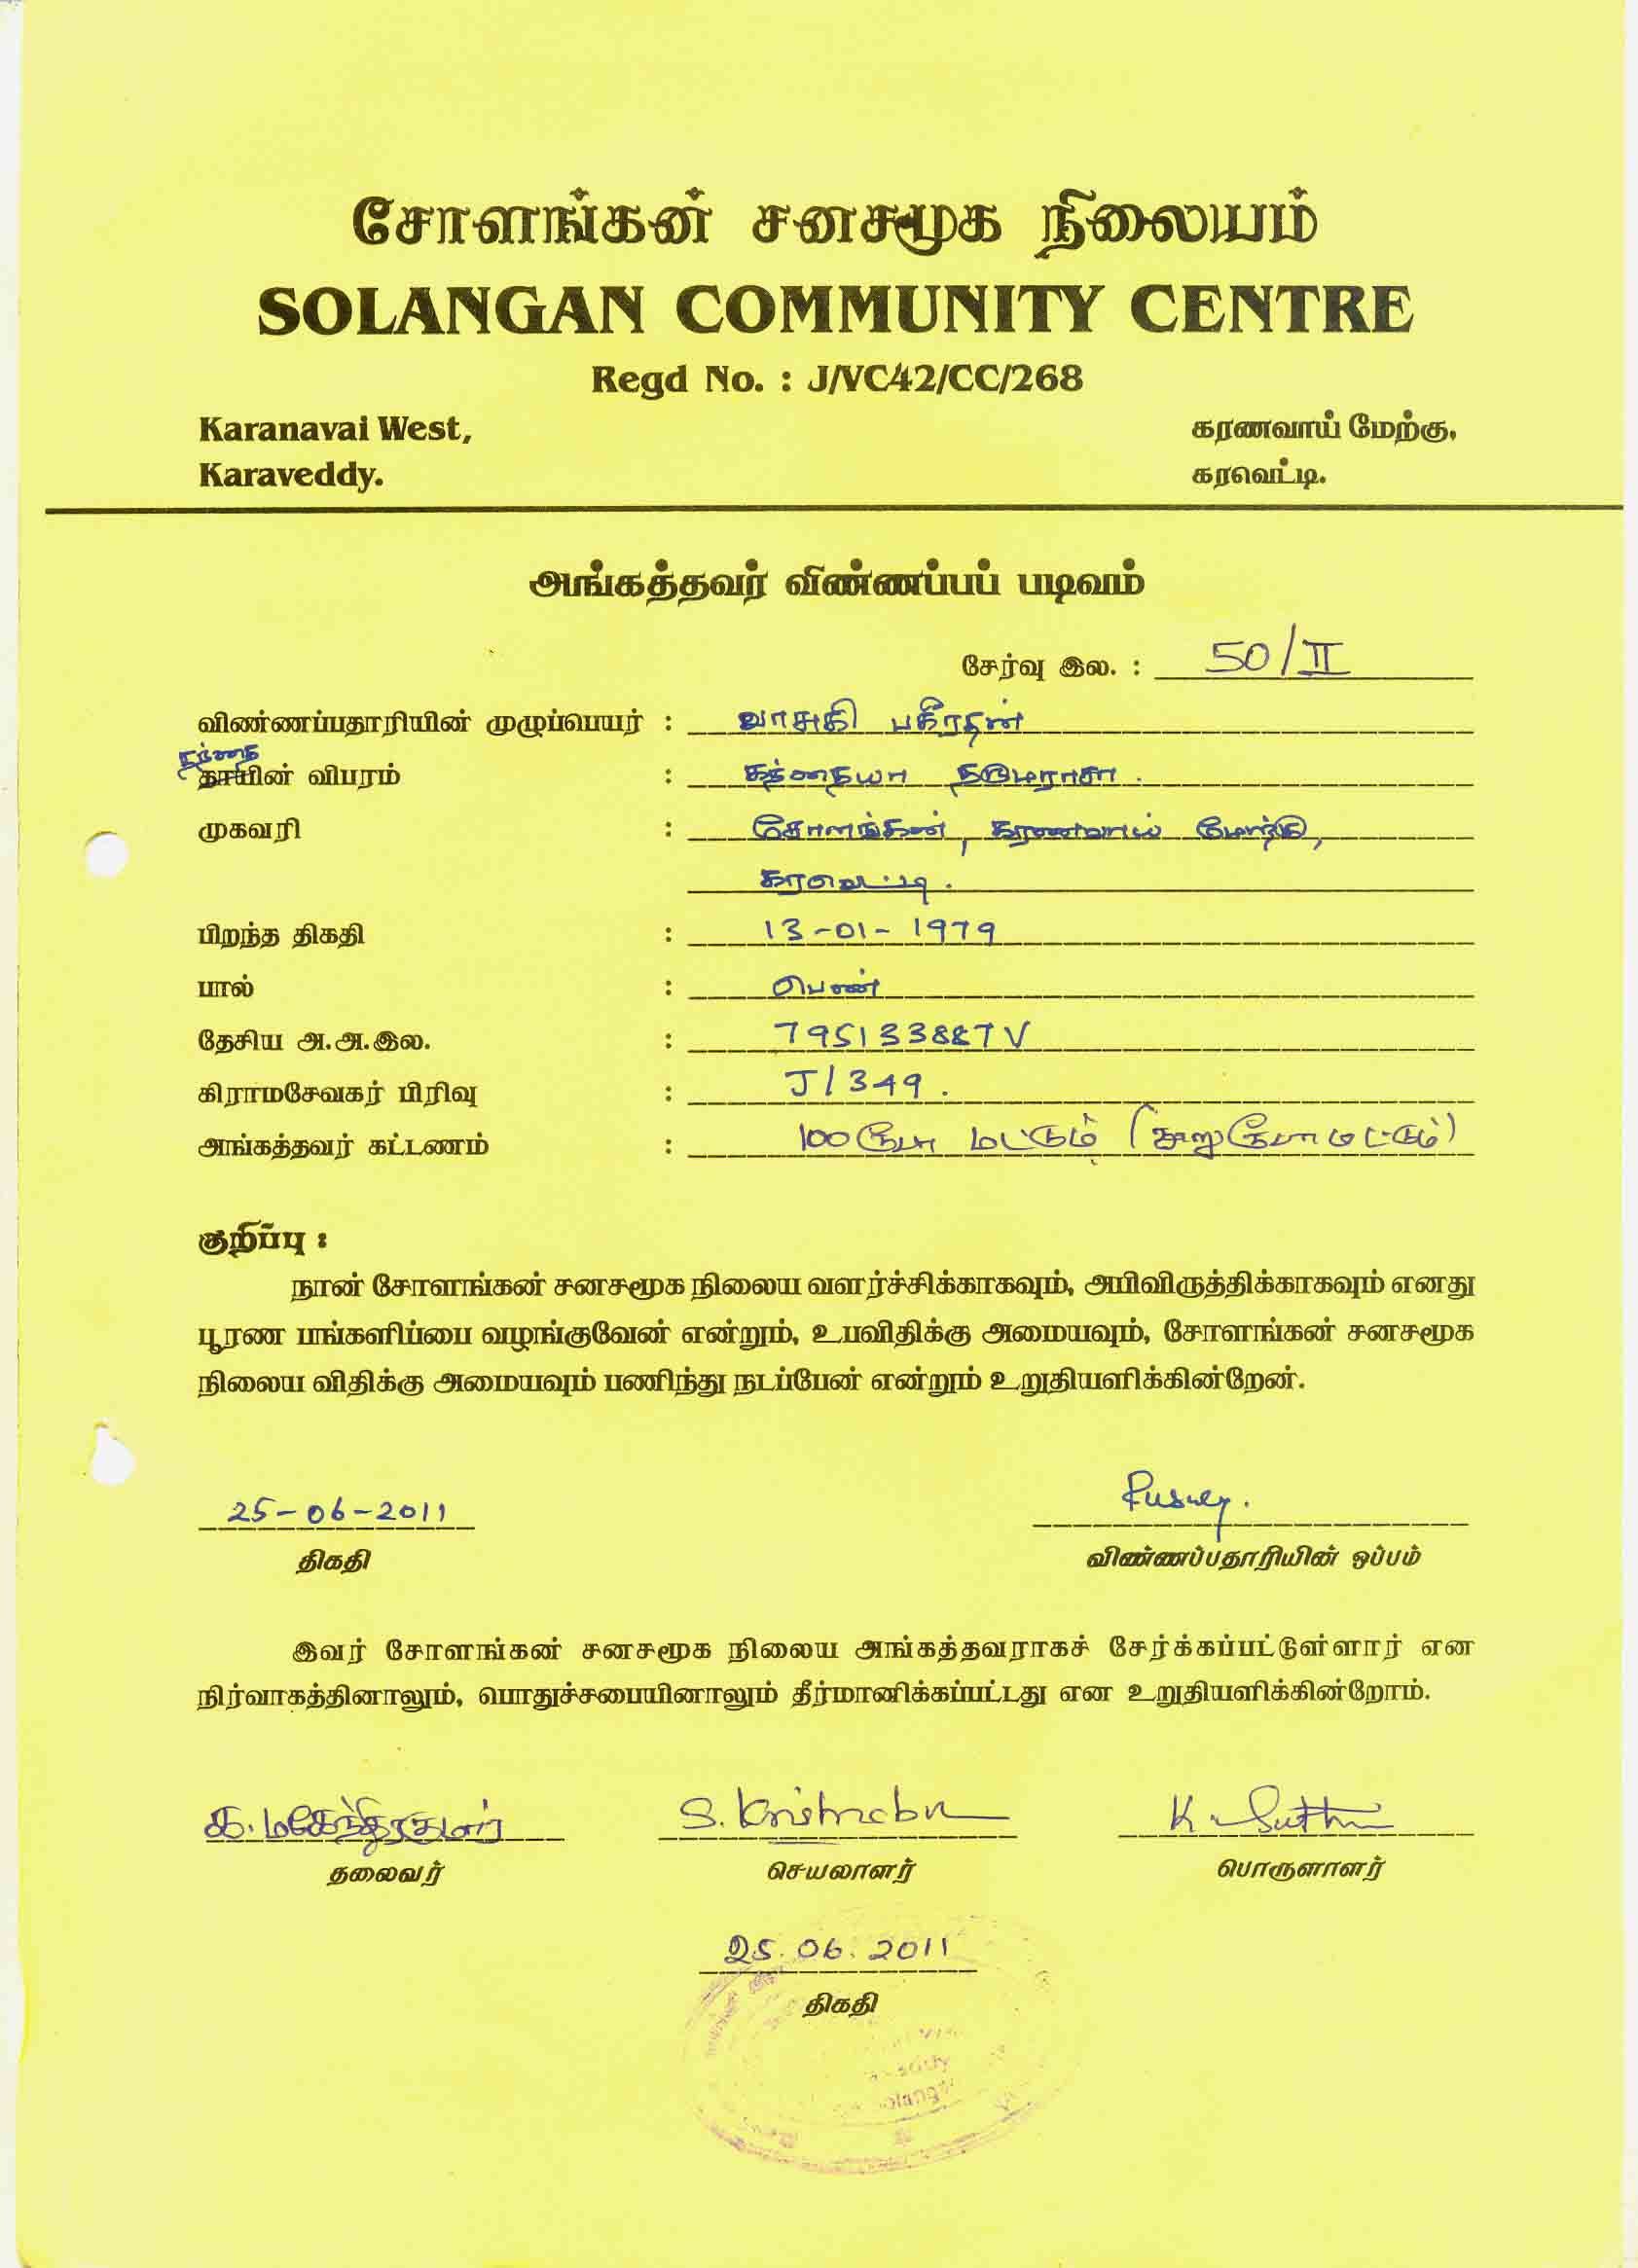 சோளங்கன் சனசமூக நிலையம்
SOLANGAN COMMUNITY CENTRE
Regd No. : J/VC42/CC/268
Karanavai West,
கரணவாய் மேற்கு,
Karaveddy.
கரவெட்டி.
அங்கத்தவர் விண்ணப்பப் படிவம்
சேர்வு இல. : 50/II
விண்ணப்பதாரியின் முழுப்பெயர் : வாசுகி பகீரதன்
தந்தை
தாயின் விபரம் : கந்தையா தருமராசா .
முகவரி : சோளங்கன், கரணவாய் மேற்கு,
கரவெட்டி .
பிறந்த திகதி : 13-01-1979
பால் : பெண்
தேசிய அ.அ.இல. : 795133887V
கிராமசேவகர் பிரிவு : J/349 .
அங்கத்தவர் கட்டணம் : 100 ரூபா மட்டும் (நூறு ரூபா மட்டும்)
குறிப்பு :
நான் சோளங்கன் சனசமூக நிலைய வளர்ச்சிக்காகவும், அபிவிருத்திக்காகவும் எனது
பூரண பங்களிப்பை வழங்குவேன் என்றும், உபவிதிக்கு அமையவும், சோளங்கன் சனசமூக
நிலைய விதிக்கு அமையவும் பணிந்து நடப்பேன் என்றும் உறுதியளிக்கின்றேன்.
25-06-2011
திகதி
விண்ணப்பதாரியின் ஒப்பம்
இவர் சோளங்கன் சனசமூக நிலைய அங்கத்தவராகச் சேர்க்கப்பட்டுள்ளார் என
நிர்வாகத்தினாலும், பொதுச்சபையினாலும் தீர்மானிக்கப்பட்டது என உறுதியளிக்கின்றோம்.
க. மகேந்திரகுமார்
S. Krishnabu
K. Sutha
தலைவர்
செயலாளர்
பொருளாளர்
25.06.2011
திகதி